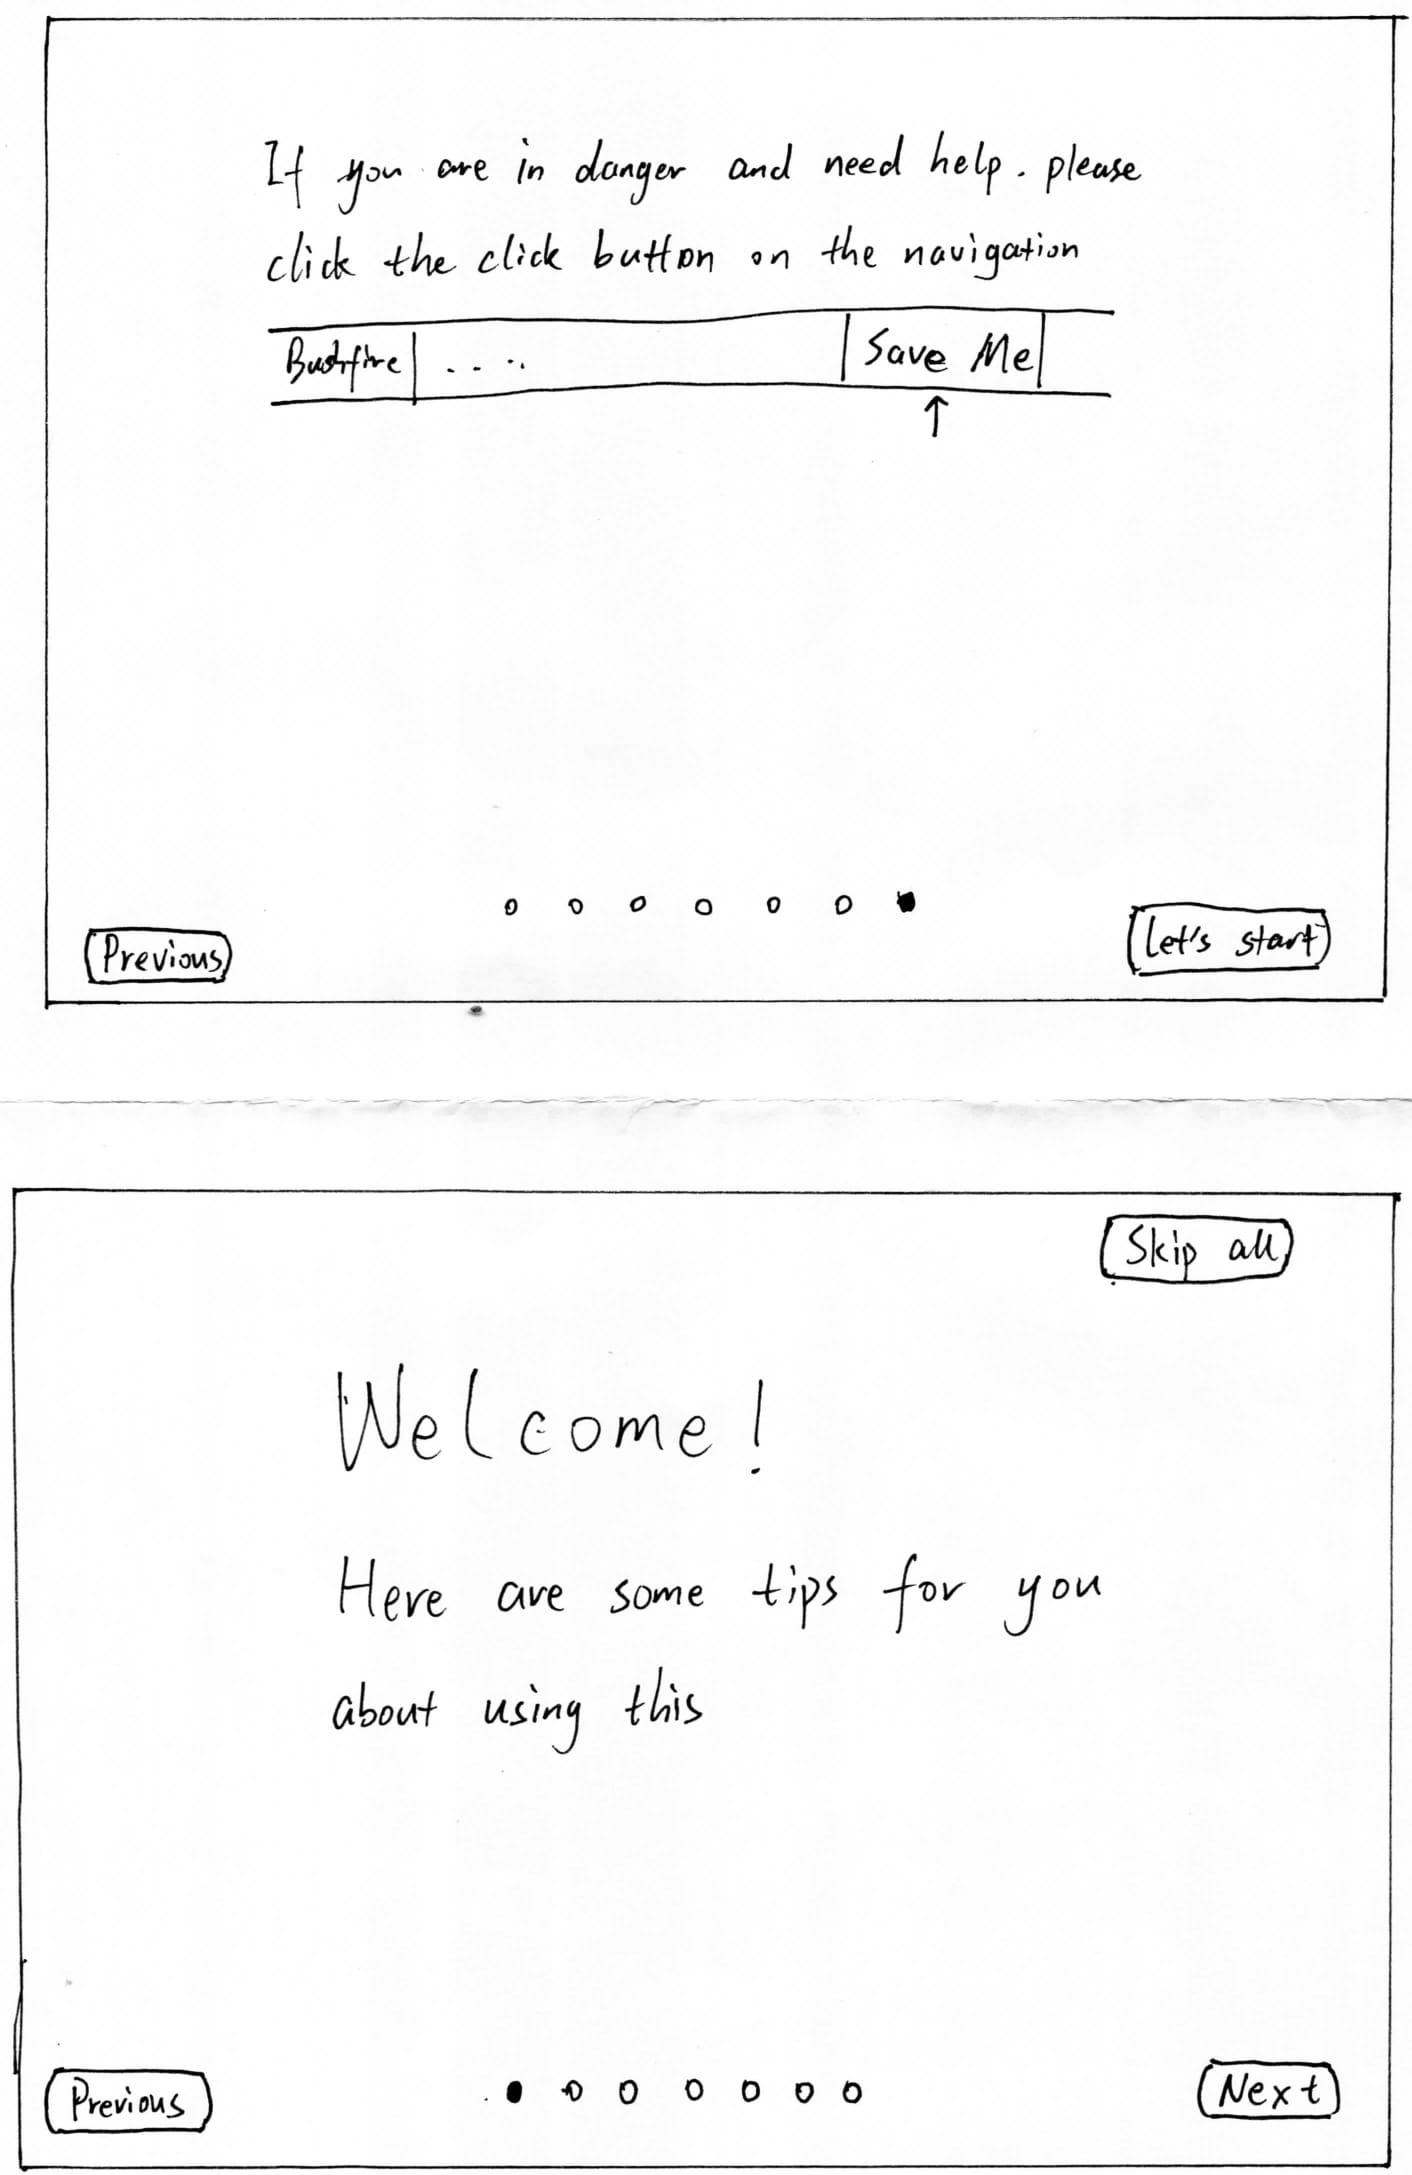 If you are in danger and need help. please
click the click button on the navigation
Bushfire .... Save Me
↑
Previous
Let's start
Skip all
Welcome!
Here are some tips for you
about using this
Previous
Next